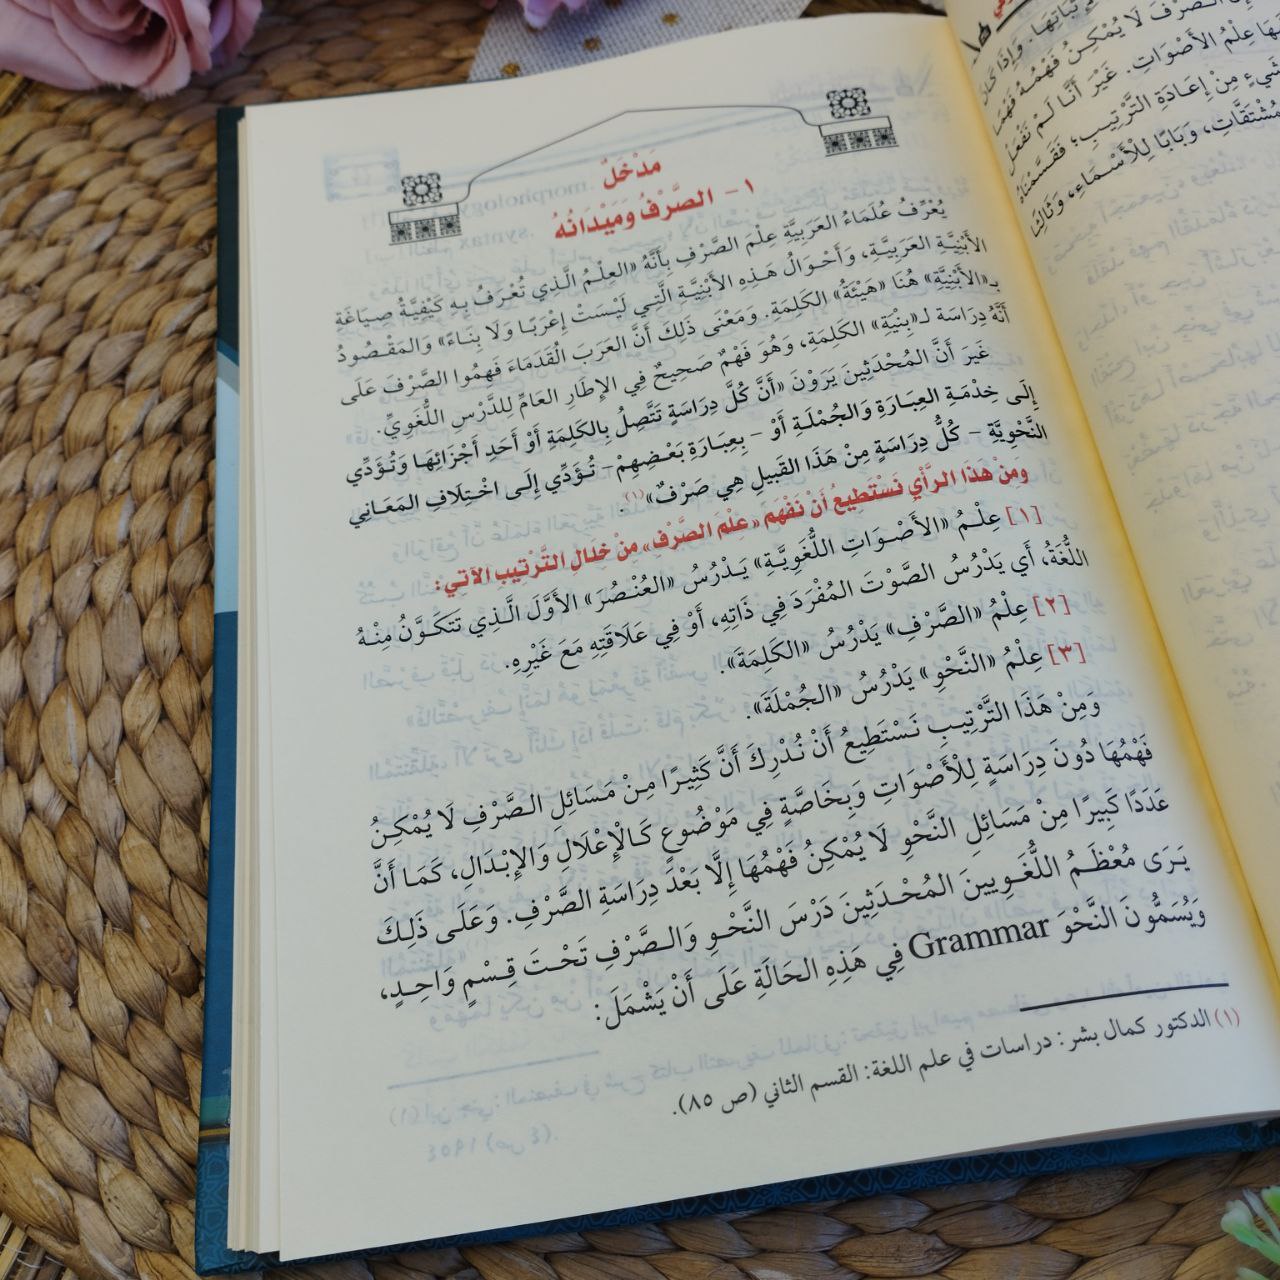 مَدْخَلٌ
١ - الصَّرْفُ وَمَيْدَانُهُ
يُعْرِّفُ عُلَمَاءُ العَرَبِيَّةِ عِلْمَ الصَّرْفِ بِأَنَّهُ «العِلْمُ الَّذِي تُعْرَفُ بِهِ كَيْفِيَّةُ صِيَاغَةِ
الأَبْنِيَّةِ العَرَبِيَّةِ، وَأَحْوَالُ هَذِهِ الأَبْنِيَّةِ الَّتِي لَيْسَتْ إِعْرَبًا وَلَا بِنَاءً» وَالمَقْصُودُ
بِـ«الأَبْنِيَّةِ» هُنَا «هَيْئَةُ» الكَلِمَةِ. وَمَعْنَى ذَلِكَ أَنَّ العَرَبَ القُدَمَاءَ فَهِمُوا الصَّرْفَ عَلَى
أَنَّهُ دِرَاسَة لـ«بِنْيَةِ» الكَلِمَةِ، وَهُوَ فَهْمٌ صَحِيحٌ فِي الإِطَارِ العَامِّ لِلدَّرْسِ اللُّغَوِيِّ.
غَيَرَ أَنَّ المُحْدَثِينَ يَرَوْنَ «أَنَّ كُلَّ دِرَاسَةٍ تَتَّصِلُ بِالكَلِمَةِ أَوْ أَحَدِ أَجْزَائِهَا وَتُؤَدِّي
إِلَى خِدْمَةِ العِبَارَةِ وَالجُمْلَةِ أَوْ - بِعِبَارَةِ بَعْضِهِمْ- تُؤَدِّي إِلَى اخْتِلَافِ المَعَانِي
النَّحْوِيَّةِ - كُلُّ دِرَاسَةٍ مِنْ هَذَا القَبِيلِ هِي صَرْفٌ»(١).
وَمِنْ هَذَا الرَّأْيِ نَسْتَطِيعُ أَنْ نَفْهَمَ «عِلْمَ الصَّرْفِ» مِنْ خَلَالِ التَّرْتِيبِ الآتي:
[١] عِلْمُ «الأَصْوَاتِ اللُّغَوِيَّةِ» يَدْرُسُ «العُنْصُرَ» الأَوَّلَ الَّذِي تَتَكَوَّنُ مِنْهُ
اللُّغَةُ، أَي يَدْرُسُ الصَّوْتَ المُفْرَدَ فِي ذَاتِهِ، أَوْ فِي عَلَاقَتِهِ مَعَ غَيْرِهِ.
[٢] عِلْمُ «الصَّرْفِ» يَدْرُسُ «الكَلِمَةَ».
[٣] عِلْمُ «النَّحْوِ» يَدْرُسُ «الجُمْلَةَ».
وَمِنْ هَذَا التَّرْتِيبِ نَسْتَطِيعُ أَنْ نُدْرِكَ أَنَّ كَثِيرًا مِنْ مَسَائِلِ الصَّرْفِ لَا يُمْكِنُ
فَهْمُهَا دُونَ دِرَاسَةٍ لِلْأَصْوَاتِ وَبِخَاصَّةٍ فِي مَوْضُوعٍ كَالْإِعْلَالِ وَالإِبْدَالِ، كَمَا أَنَّ
عَدَدًا كَبِيرًا مِنْ مَسَائِلِ النَّحْوِ لَا يُمْكِنُ فَهْمُهَا إِلَّا بَعْدَ دِرَاسَةِ الصَّرْفِ. وَعَلَى ذَلِكَ
يَرَى مُعْظَمُ اللُّغَوِيينَ المُحْدَثِينَ دَرْسَ النَّحْوِ وَالصَّرْفِ تَحْتَ قِسْمٍ وَاحِدٍ،
وَيُسَمُّونَ النَّحْوَ Grammar فِي هَذِهِ الحَالَةِ عَلَى أَنْ يَشْمَلَ:
(١) الدكتور كمال بشر: دراسات في علم اللغة: القسم الثاني (ص ٨٥).
ثَبَاتِهَا. وَإِذَا كَانَ
الصَّرْفَ لَا يُمْكِنُ فَهْمُهُ فَهْمًا
عِلْمُ الأَصْوَاتِ. غَيْرَ أَنَّا لَمْ نَفْعَلْ
مِنْ إِعَادَةِ التَّرْتِيبِ؛ فَقَسَّمْنَاهُ
وَبَابًا لِلْأَسْمَاءِ، وَثَالِثًا